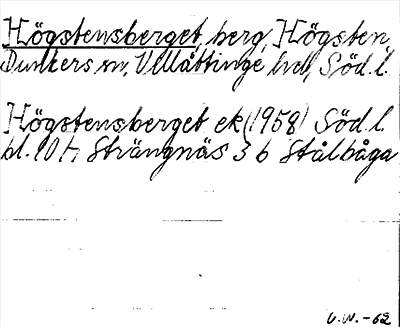 Högstensberget, berg, Högsten,
Dunkers sn, Villåttinge hd, Söd. l.
Högstensberget ek (1958) Söd. l.
bl. 10 H, Strängnäs 3 b Stålbåga
U.W. -62